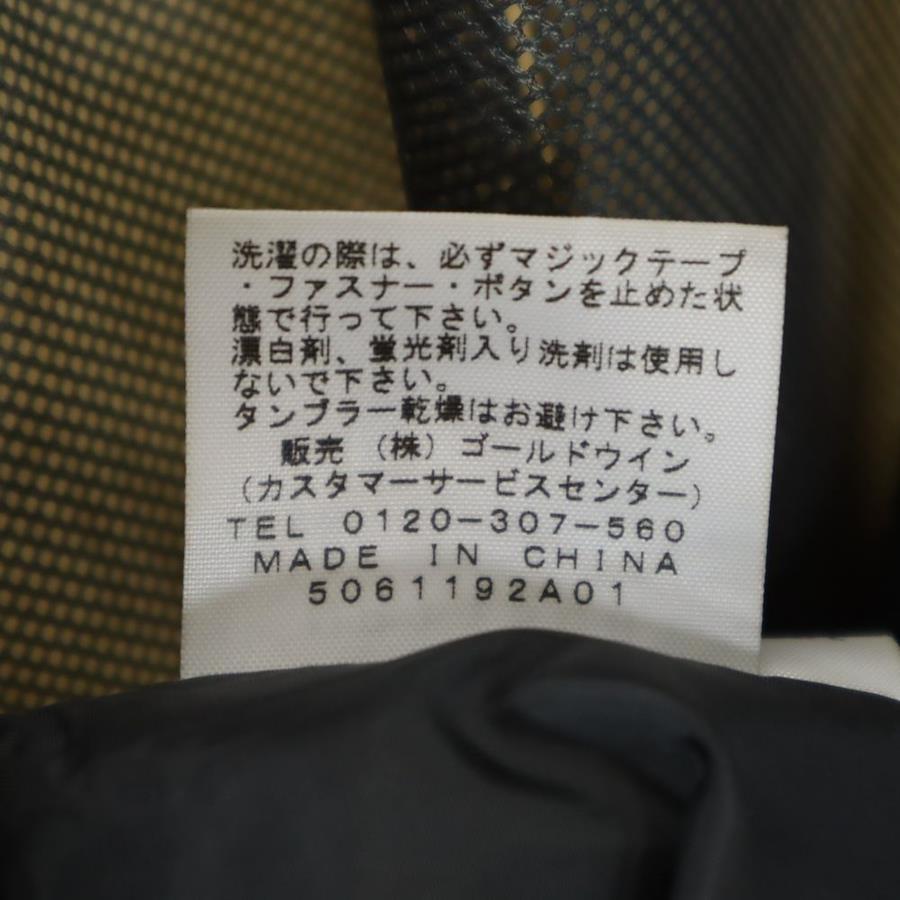 洗濯の際は、必ずマジックテープ
・ファスナー・ボタンを止めた状
態で行って下さい。
漂白剤、蛍光剤入り洗剤は使用し
ないで下さい。
タンブラー乾燥はお避け下さい。
販売 (株) ゴールドウイン
(カスタマーサービスセンター)
TEL 0120-307-560
MADE IN CHINA
5061192A01